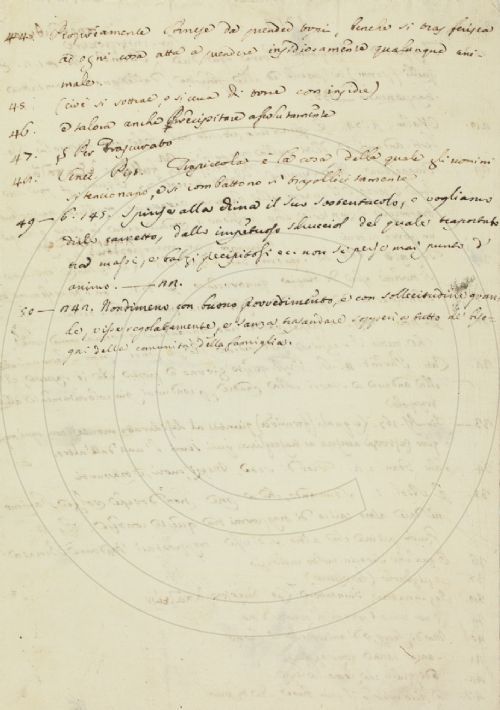 44. Propriamente Arnese da prender topi, benchè si trasferisca
ad ogni cosa atta a prendere insidiosamente qualunque ani-
male.
45. (cioè si sottrae, o si cura di torre con insidie)
46. e talora anche Precipitare assolutamente
47. Per Trascurato
48. è la cosa della quale gli uomini
si tencionano, e si combattono sì
49 — 6. 145. alla china il suo sostentacolo, o vogliamo
dire carretto, dallo impetuoso sdrucciol del quale trasportato
tra massi, e balzi precipitosi ec. non si perse mai punto d'
animo. —
50 — Nondimeno con buono provvedimento, e con sollecitudine gran-
de, visse regolatamente, e sanza trasandare sopperì a tutto al biso-
gni della comunità della famiglia.